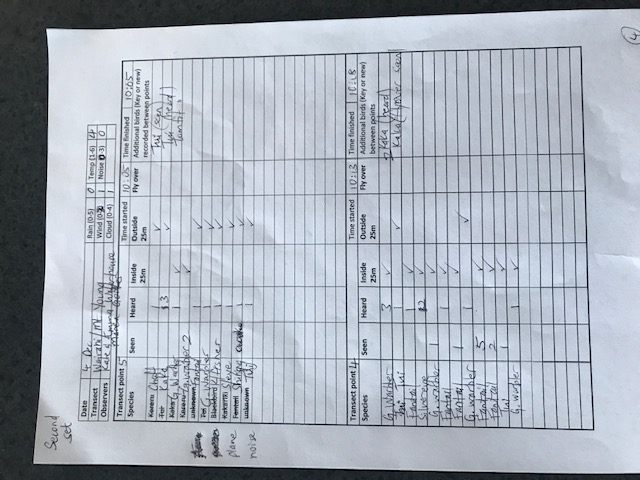 Second
set
Date 4 Dec Rain (0-5) 0 Temp (1-6) 4
Transect Wairahi/Mt Young Wind (0-3) 1 Noise (0-3) 0
Observers Kate & Emma Waterhouse Cloud (0-4) 1
Transect point 5 Time started 10:05 Time finished
Species Seen Heard Inside 25m Outside 25m Fly over Additional birds (Key or new) recorded between points
Kereru Chaff 1 ✓ Tui (seen)
Tui Kaka 3 ✓ Tui (heard)
Kaka G. Warbler 1 ✓ Tomtit
Kereru G. warbler 2 ✓
unknown Fantail 1 ✓
Tui G. Warbler 1 ✓
Blackbird K/fisher 1 ✓
plane Kakariki 1 ✓
Fantail 1 ✓
noise unknown Tui 1 ✓
Transect point 4 Time started 10:13 Time finished 10:18
Species Seen Heard Inside 25m Outside 25m Fly over Additional birds (Key or new) between points
G. Warbler 3 ✓ Kaka (heard)
Tui 1 ✓ Kaka
Fantail 1 ✓
Silvereye 2 ✓
G. warbler 1 ✓
Fantail 1 ✓
Fantail 1 ✓
G. warbler 1 ✓
Fantail 5 ✓
Fantail 2 ✓
Tui 1 ✓
G. warbler 1 ✓
4